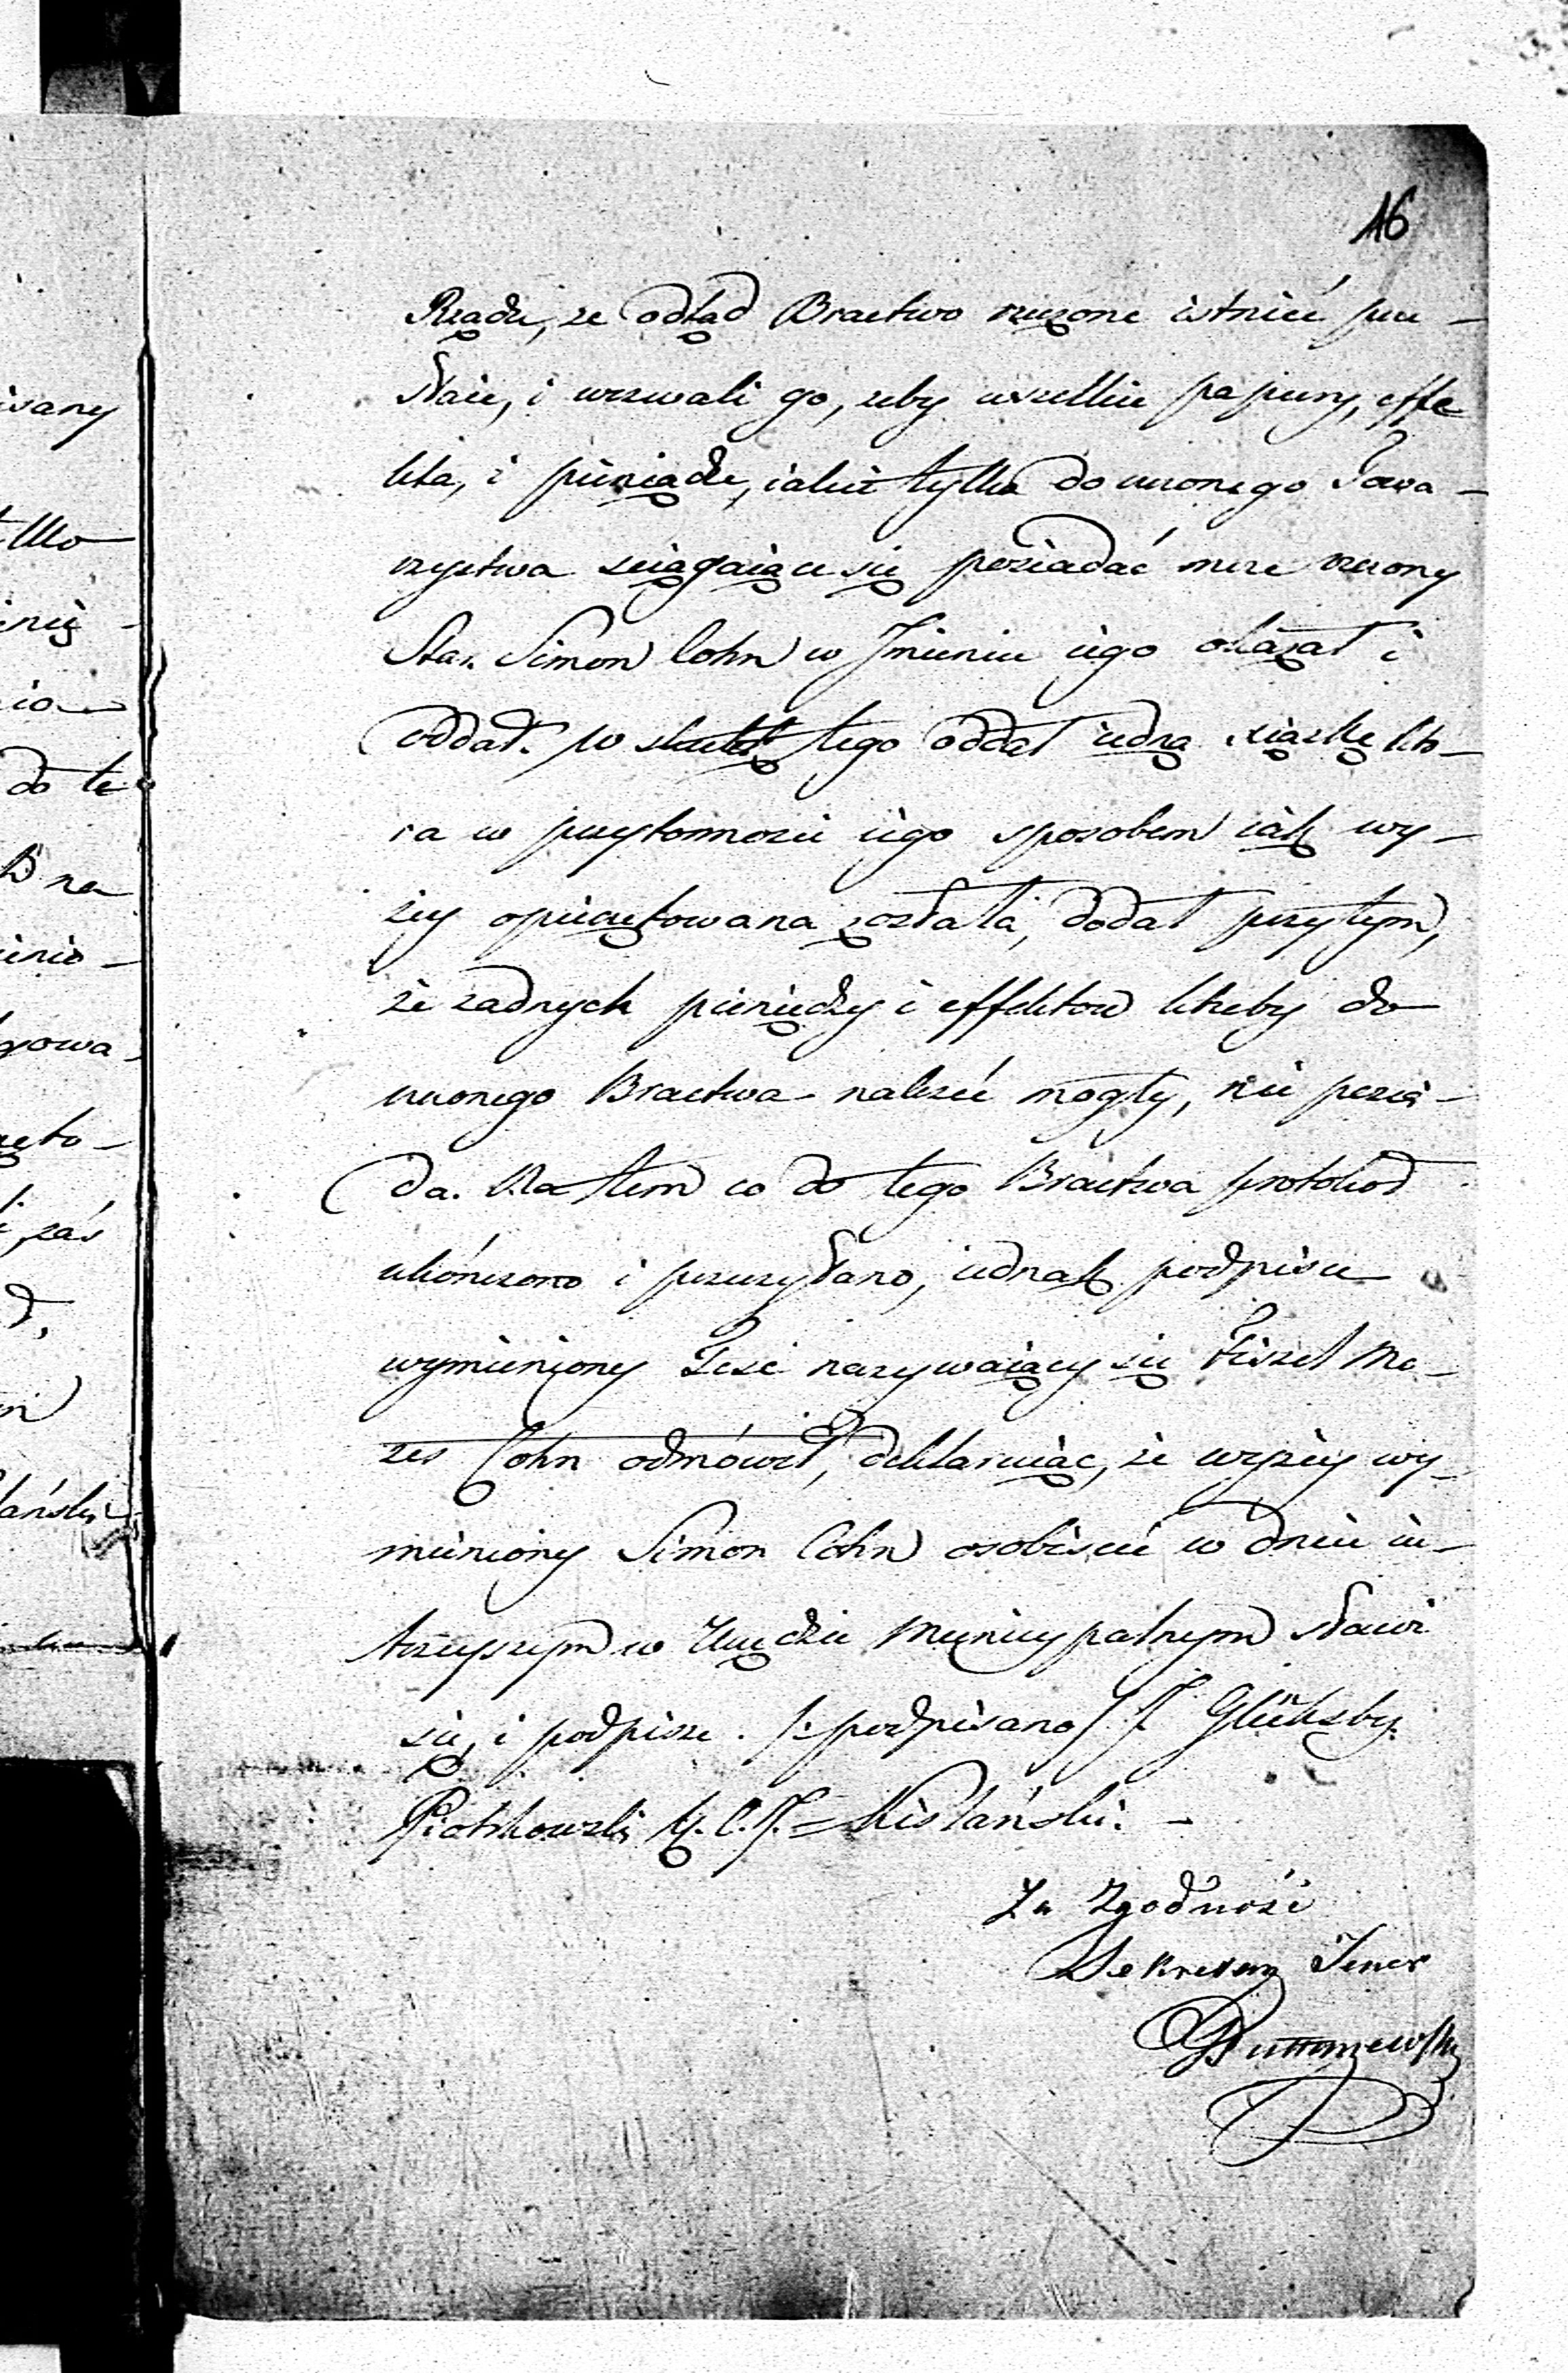 16
Rządu, że odtąd Bractwo rzeczone istnieć prze-
staie, i wezwali go, żeby wszelkie papiery, effe
kta, i pieniądze, iakie tylko do rzeczonego Towa-
rzystwa ściągaiące się posiadać może rzeczony
Star. Simon Cohn w Jmieniu iego okazał i
oddał. W skutek tego oddał iedną xiążkę któ-
ra w przytomności iego sposobem iak wy-
żey opieczętowana została, dodał przytym,
że żadnych pieniędzy i effektów któreby do
rzeczonego Bractwa należeć mogły, nie posia-
da. Na tem co do tego Bractwa protokół
ukończono i przeczytano, iednak podpisu
wymieniony Teść nazywaiący się Fiszel Mo-
zes Cohn odmówił, deklaruiąc, że wyżey wy-
mieniony Simon Cohn osobiście w dniu iu-
trzeyszym w Urzędzie Municypalnym stawi
się, i podpisze. /:podpisano/ J. Glüksby.
Piotrkowski K.C.J. = Kislański. -
Za Zgodność
Sekretarz Jener
isany
tko
do te
na
gowa-
zaś